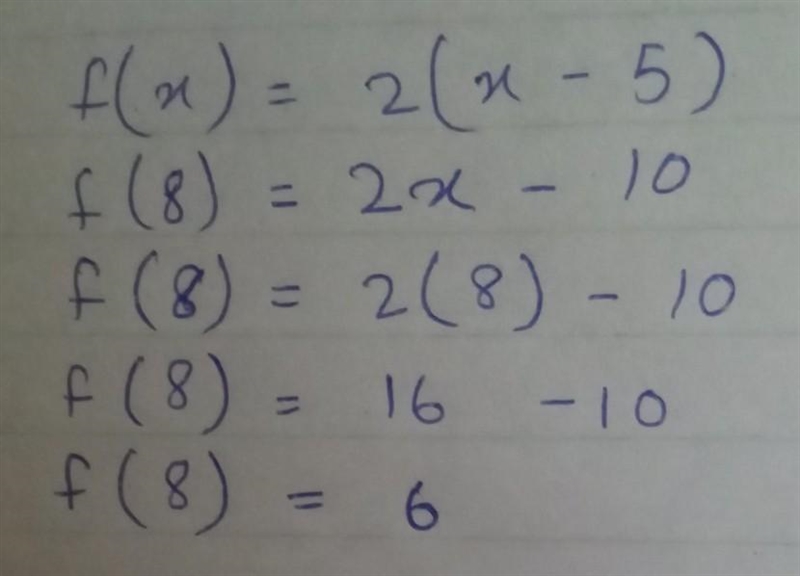 f(x) = 2(x - 5)
f(8) = 2x - 10
f(8) = 2(8) - 10
f(8) = 16 - 10
f(8) = 6